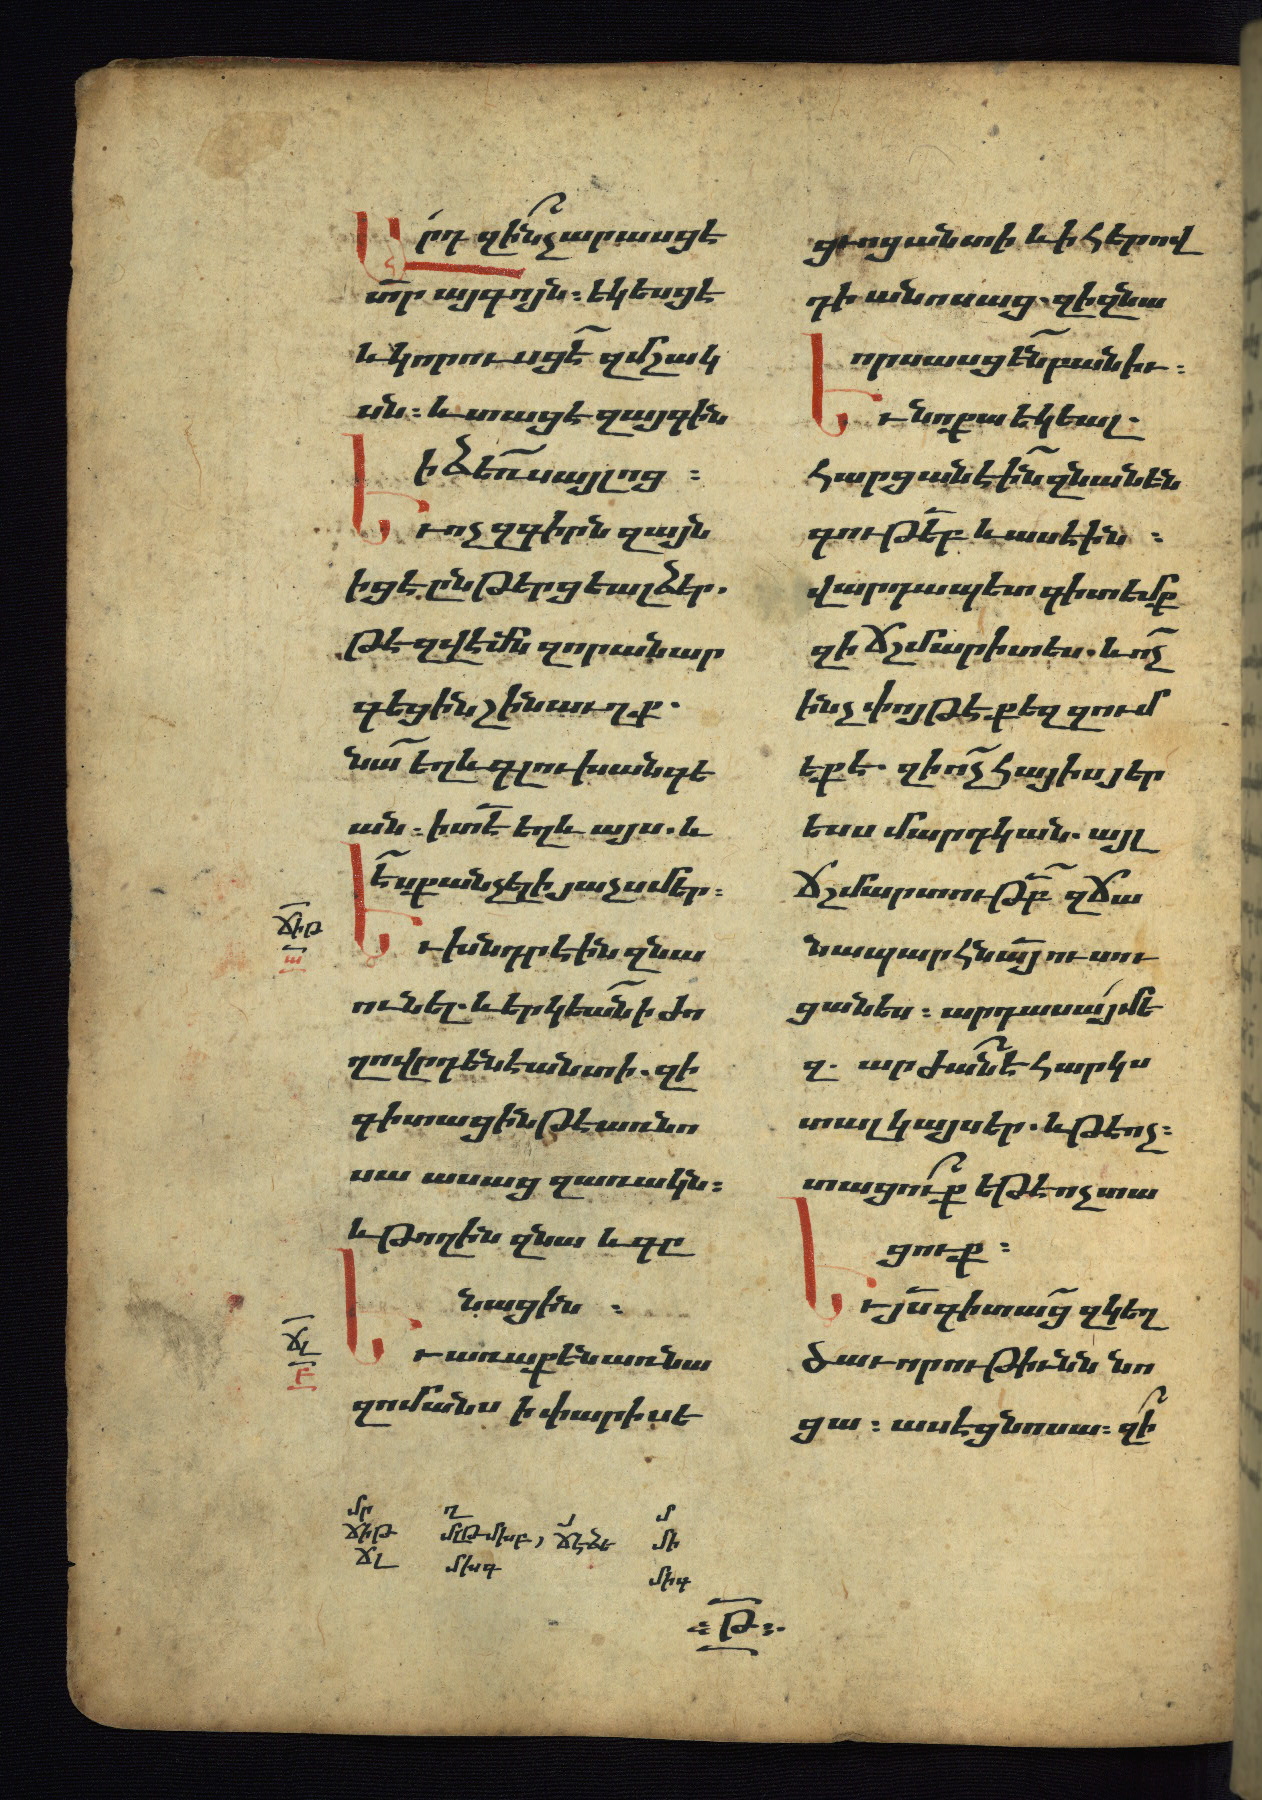 Արդ զի՞նչ արասցէ
տր այգոյն։ եկեսցէ
և կորուսցէ զմշակ
սն։ և տացէ զայգին
իձեռս այլոց ։
Եւ ոչ զգիրն զայն
իցէ ընթերցեալ ձեր.
թէ զվէմն զոր անար
գեցին շինաւղք.
նա եղև գլուխ անգե
ան։ ի տէ եղև այս. և
է սքանչելի յաչս մեր։
Եւ խնդրէին զնա
ունել. և երկեան ի ժո
ղովրդենէ անտի. զի
գիտացին թէ առ նո
սա ասաց զառակն։
և թողին զնա և գը
նացին ։
Եւ առաքեն առ նա
զոմանս ի փարիսե
ցւոց անտի և ի հերով
դիանոսաց. զի զնա
որսասցեն բանիւ։
Եւ նոքա եկեալ.
հարցանէին զնա նեն
գութեբ և ասէին ։
վարդապետ գիտեմք
զի ճշմարիտ ես. և ոչ
ինչ փոյթ է քեզ զում
եքե. զի ոչ հայիս յեր
եսս մարդկան. այլ
ճշմարտութբ զճա
նապարհն այ ուսու
ցանես։ արդ ասա մե
զ. արժան է հարկս
տալ կայսեր. և թե ոչ։
տացու՞ք եթէ ոչ տա
ցուք ։
Եւ յս գիտաց զկեղ
ծաւորութիւնն նո
ցա։ ասէ ցնոսա։ զի՞
ճիթ
ա
ճլ
բ
մր
ճիթ
ճլ
մխգ
մ
մի
միգ
Թ